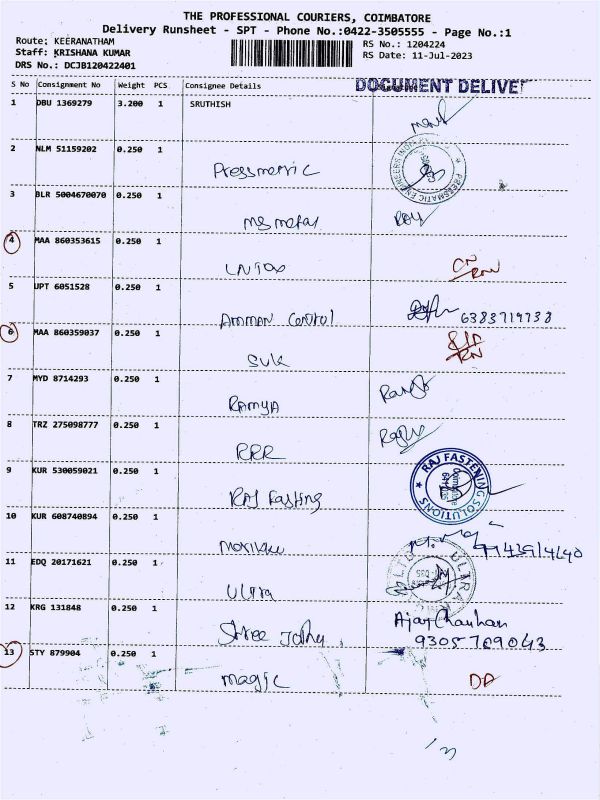 THE PROFESSIONAL COURIERS, COIMBATORE
Delivery Runsheet - SPT - Phone No.:0422-3505555 - Page No.:1
Route: KEERANATHAM
RS No.: 1204224
Staff: KRISHANA KUMAR
RS Date: 11-Jul-2023
DRS No.: DCJB120422401
S No Consignment No Weight PCS Consignee Details
DOCUMENT DELIVE
1 DBU 1369279 3.200 1 SRUTHISH
2 NLM 51159202 0.250 1
Pressmatric
PRESSMATIC ENGINEERS INDIA
3 BLR 5004670070 0.250 1
4 MAA 860353615 0.250 1
5 UPT 6051528 0.250 1
Amman Control 6383719738
6 MAA 860359037 0.250 1
Sulk
7 MYD 8714293 0.250 1
RAMYA
8 TRZ 275098777 0.250 1
RRR
9 KUR 530059021 0.250 1
RAJ Fasting
RAJ FASTENING SOLUTIONS
10 KUR 608740894 0.250 1
11 EDQ 20171621 0.250 1
Ultra
12 KRG 131848 0.250 1
Shree Ajay Chauhan
9305709043
13 STY 879904 0.250 1
magic